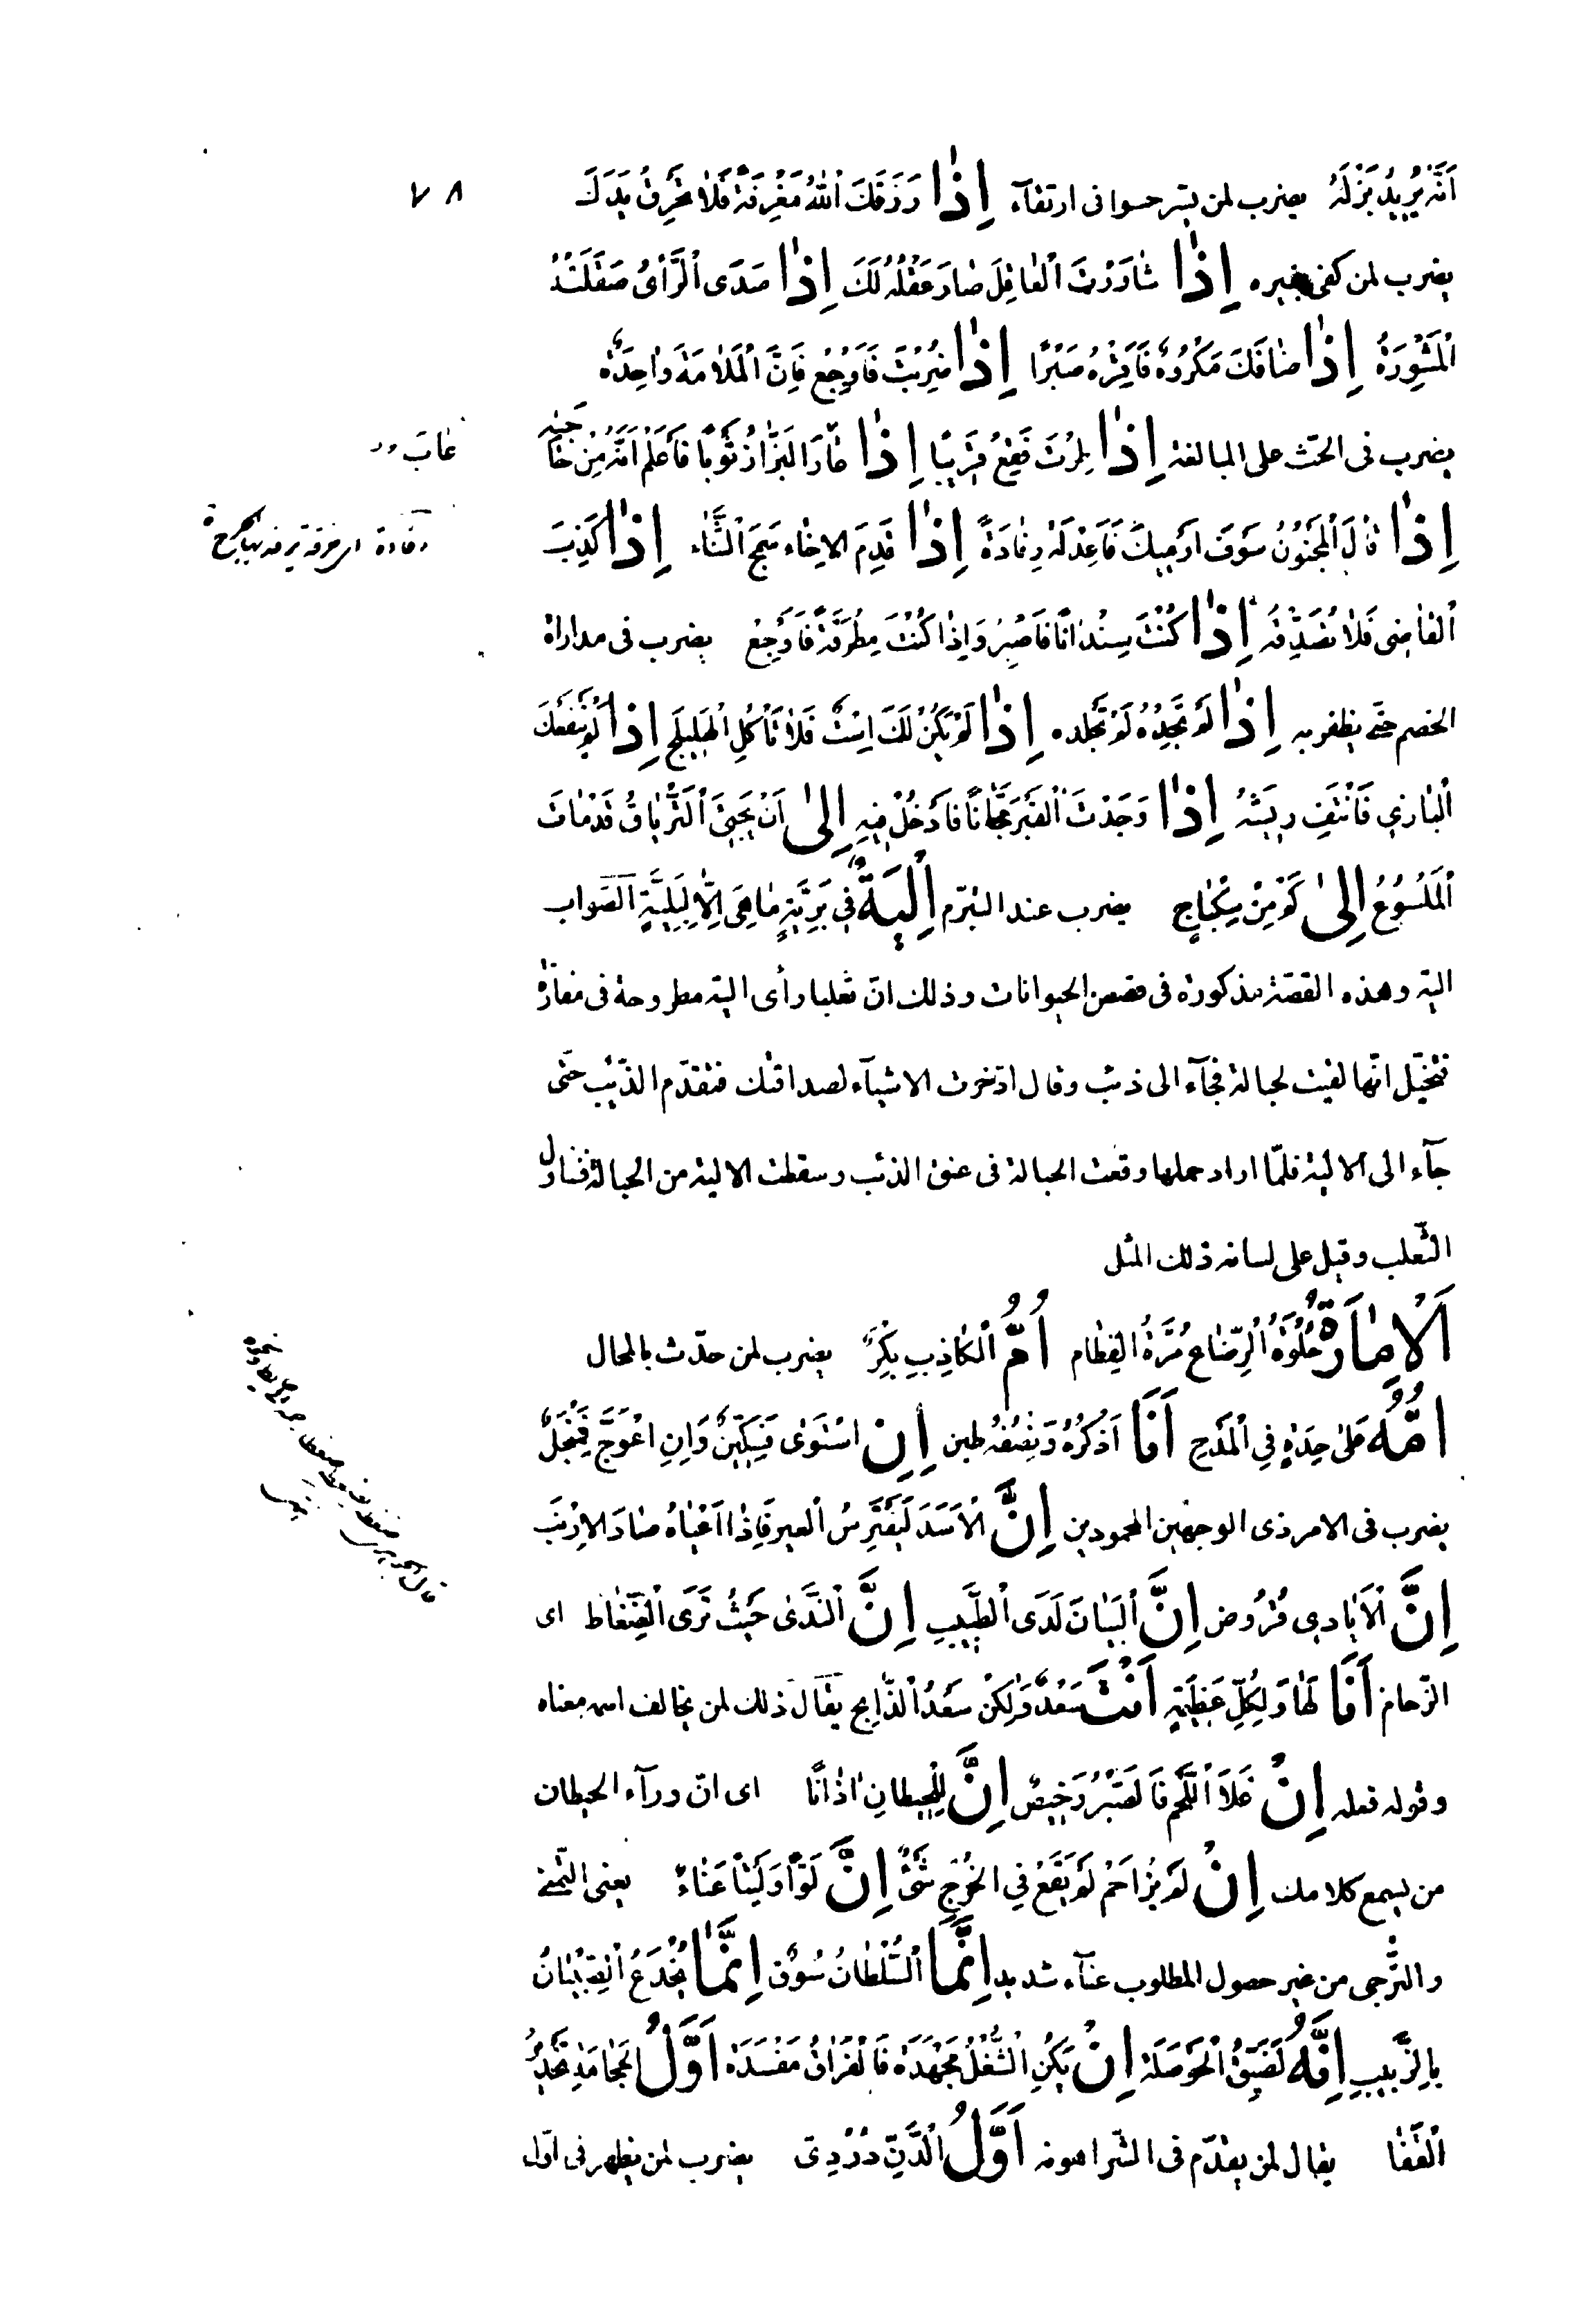 ٧٨
اَنَّهُ يُرِيدُ بَزْلَهُ يضرب لمن يسّر حسوا فى ارتغآء اِذٰا رَزَقَكَ اللهُ مَغْرِفَةً فَلاٰ تُحْرِقْ يَدَكَ
يضرب لمن كفى بغيره اِذٰا شٰاوَرْتَ الْعٰاقِلَ صٰارَ عَقْلُهُ لَكَ اِذٰا صَدَى الرَّأْىُ صَقَلَتْهُ
الْمَشْوَرَةُ اِذٰا ضٰافَكَ مَكْرُوهٌ فَاَقِرْهُ صَبْرًا اِذٰا ضَرَبْتَ فَاَوْجِعْ فَاِنَّ الْمَلاٰمَةَ وٰاحِدَةٌ
يضرب فى الحّث على المبالغة اِذٰا طِرْتَ فَقَعْ قَرِيبًا اِذٰا عٰابَ الْبَزّٰازُ ثَوْبًا فَاعْلَمْ اَنَّهُ مِنْ حٰاجَتِهِ
عٰابَ
اِذٰا قٰالَ الْمَجْنُونُ سَوْفَ اَرْمِيكَ فَاَعِدْ لَهُ رِفٰادَةً اِذٰا قَدِمَ الاِخٰاء سَمِجَ الثَّنٰاء اِذٰا كَذِبَ
رفادة اى خرقة يرفد بها الجرح
الْقٰاضِى فَلاٰ تُصَدِّقْهُ اِذٰا كُنْتَ سِنْدٰانًا فَاصْبِرْ وَاِذٰا كُنْتَ مِطْرَقَةً فَاَوْجِعْ يضرب فى مداراة
الخصم حتّى يظفر به اِذٰا لَمْ تَجِدْهُ لَمْ تَجْلِده اِذٰا لَمْ يَكُنْ لَكَ اِسْتٌ فَلاٰ تَأْكُلِ الْهَلِيلَجَ اِذٰا لَمْ يَنْفَعْكَ
الْبٰازِى فَانْتِفْ رِيشَهُ اِذٰا وَجَدْتَ الْقَبْرَ مَجّٰانًا فَادْخُلْ فِيهِ اِلىٰ اَنْ يَجِىءَ التَّرْيٰاقُ قَدْ مٰاتَ
الْمَلْسُوعُ اِلىٰ كَمْ مِنْ سِكْبٰاجٍ يضرب عند التبرّم اَلْيَةٌ فِى بَرِّيَّةٍ مٰا هِىَ اِلاّٰ لِبَلِيَّةٍ الصّواب
الية وهذه القصّة مذكورة فى قصص الحيوانات وذلك انّ ثعلبا رأى الية مطروحة فى مفازة
فتخيّل انّها لقيت لحبالة فجآء الى ذئب وقال ادّخرت الاشيآء لصداقتك فتقدّم الذّئب حتّى
جآء الى الالية فلمّا اراد حملها وقعت الحبالة فى عنق الذئب وسقطت الالية من الحبالة فتناول
الثّعلب وقيل على لسانه ذلك المثل
اَلاِمٰارَةُ حُلْوَةُ الرِّضٰاعِ مُرَّةُ الفِطٰام اُمُّ الْكٰاذِبِ بِكْرٌ يضرب لمن حدّث بالمحال
اُمُّهُ عَلىٰ حِدَةٍ فِى الْمَدْحِ اَنَا اَذْكُرُهُ وَنِصْفُهُ طين اِنِ اسْتَوٰى فَسِكّينٌ وَاِنِ اعْوَجَّ فَمِنْجَلٌ
يضرب فى الامر ذى الوجهين المحمودين اِنَّ الْاَسَدَ لَيَفْتَرِسُ الْعَيرَ فَاِذٰا اَعْيٰاهُ صٰادَ الاَرْنَبَ
اِنَّ الْاَيٰادِى قُرُوض اِنَّ الْبَيٰانَ لَدَى الطَّبِيبِ اِنَّ النَّدٰى حَيْثُ تَرَى الضِّغٰاط اى
الزّحام اَنَا لَهٰا وَلِكُلِّ عَظِيمَةٍ اَنْتَ سَعْدٌ وَلٰكِنْ سَعْدُ الذّٰابِح يقال ذلك لمن يخالف اسمه معناه
وقوله فعله اِنْ غَلاَ اللَّحْمُ فَالصَّبْرُ رَخِيصٌ اِنَّ لِلْحِيطانِ اٰذٰانًا اى انّ ورآء الحيطان
من يسمع كلامك اِنْ لَمْ يُزٰاحَمْ لَمْ يَقَعْ فِى الخُرْجِ شَىْءٌ اِنَّ لَوًّا وَلَيْتًا عَنٰاءٌ يعنى التّمنّى
والتّرجى من غير حصول المطلوب عنآء شديد اِنَّمَا السُّلْطٰانُ سُوقٌ اِنَّمٰا يُخْدَعُ الصِّبْيٰانُ
بِالزَّبِيبِ اِنَّهُ لَضَيِّقُ الْحَوْصَلَةِ اِنْ يَكُنِ الشُّغْلُ مَجْهَدَةً فَالْفَرٰاغُ مَفْسَدَة اَوَّلُ الحِجٰامَةِ تَحْذِيرُ
الْقَفٰا يقال لمن يقدّم فى الشّر اهونه اَوَّلُ الدَّنِّ دُرْدِىّ يضرب لمن يظهر فى اوّل